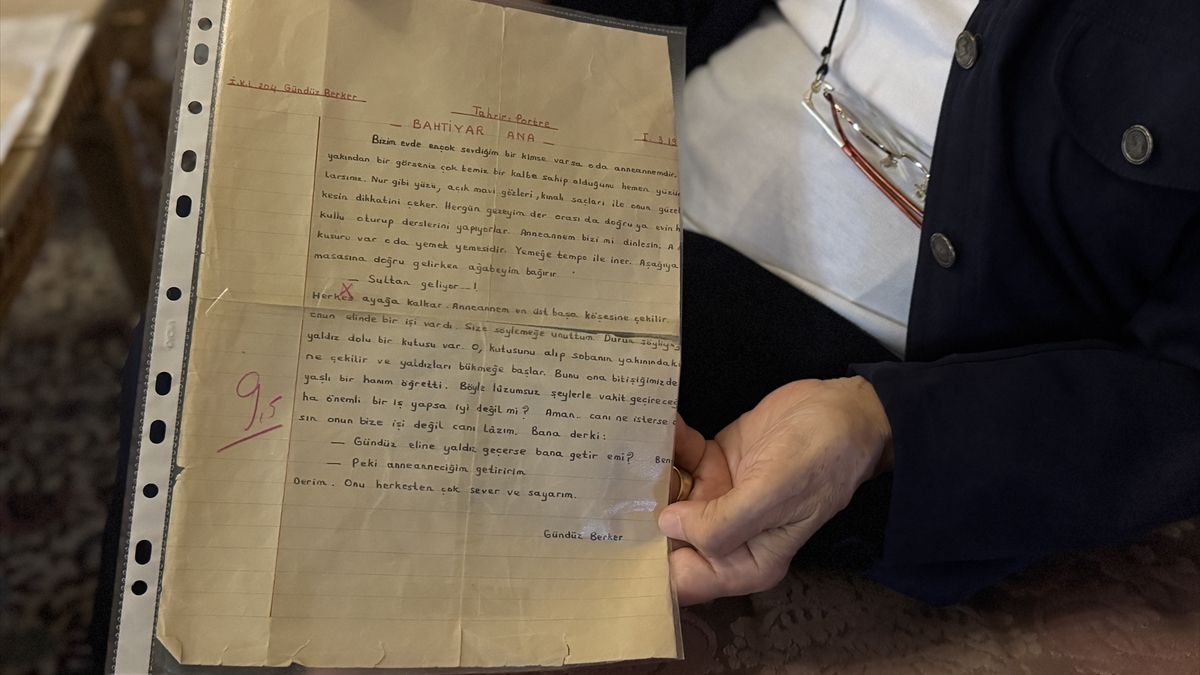 İ.K.L 204 Gündüz Berker
Tahrir: Portre
— BAHTİYAR ANA — I. 3. 19
Bizim evde ençok sevdiğim bir kimse varsa oda anneannemdir.
yakından bir görseniz çok temiz bir kalbe sahip olduğunu hemen
larsınız. Nur gibi yüzü, açık mavi gözleri, kınalı saçları ile onun
kesin dikkatini çeker. Hergün gezeyim der orası da doğru ya evin
kullu oturup derslerini yapıyorlar. Anneannem bizi mi dinlesin.
kusuru var o da yemek yemesidir. Yemeğe tempo ile iner. Aşağıya
masasına doğru gelirken ağabeyim bağırır.
— Sultan geliyor...!
Herkes ayağa kalkar. Anneannem en üst başa köşesine çekilir.
onun elinde bir işi vardı. Size söylemeğe unuttum. Durun
yaldız dolu bir kutusu var. O, kutusunu alıp sobanın
ne çekilir ve yaldızları bükmeğe başlar. Bunu ona bitişiğimizde
yaşlı bir hanım öğretti. Böyle lüzumsuz şeylerle vakit
ha önemli bir iş yapsa iyi değil mi? Aman.. canı ne isterse
sın onun bize işi değil canı lâzım. Bana derki:
— Gündüz eline yaldız geçerse bana getir emi? Ben
— Peki anneanneciğim getiririm
Derim. Onu herkesten çok sever ve sayarım.
9,5
Gündüz Berker